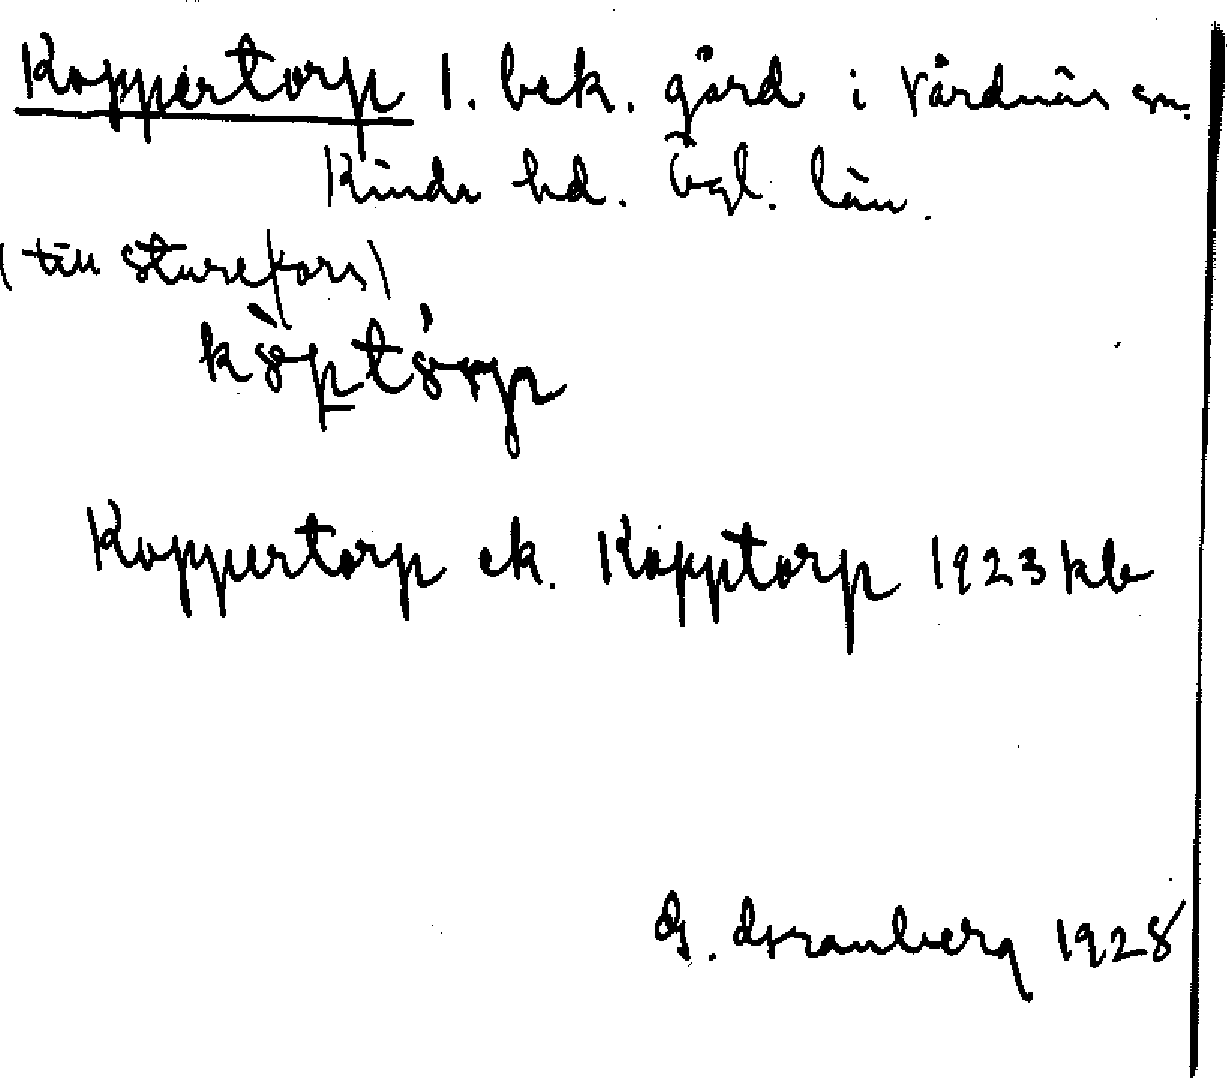 Koppertorp 1. bek. gård i Vårdnäs sn.
Kinda hd. Ögl. län.
(till Sturefors)
Koppertorp ek. Kopptorp 1923 kb
G. Granberg 1928